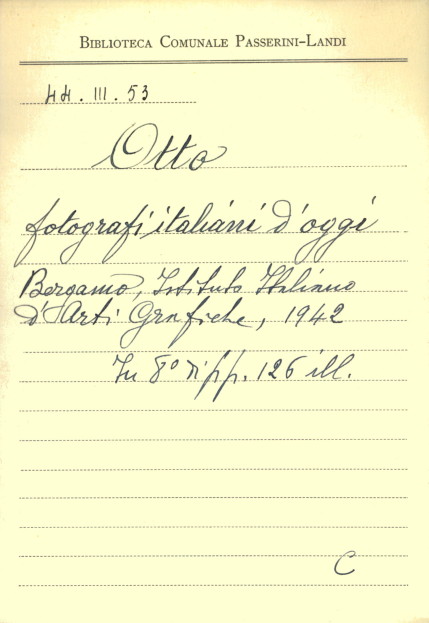 BIBLIOTECA COMUNALE PASSERINI-LANDI
44. III. 53
Otto
fotografi italiani d'oggi
Bergamo, Istituto Italiano
d'Arti Grafiche, 1942
In 8° di pp. 126 ill.
C